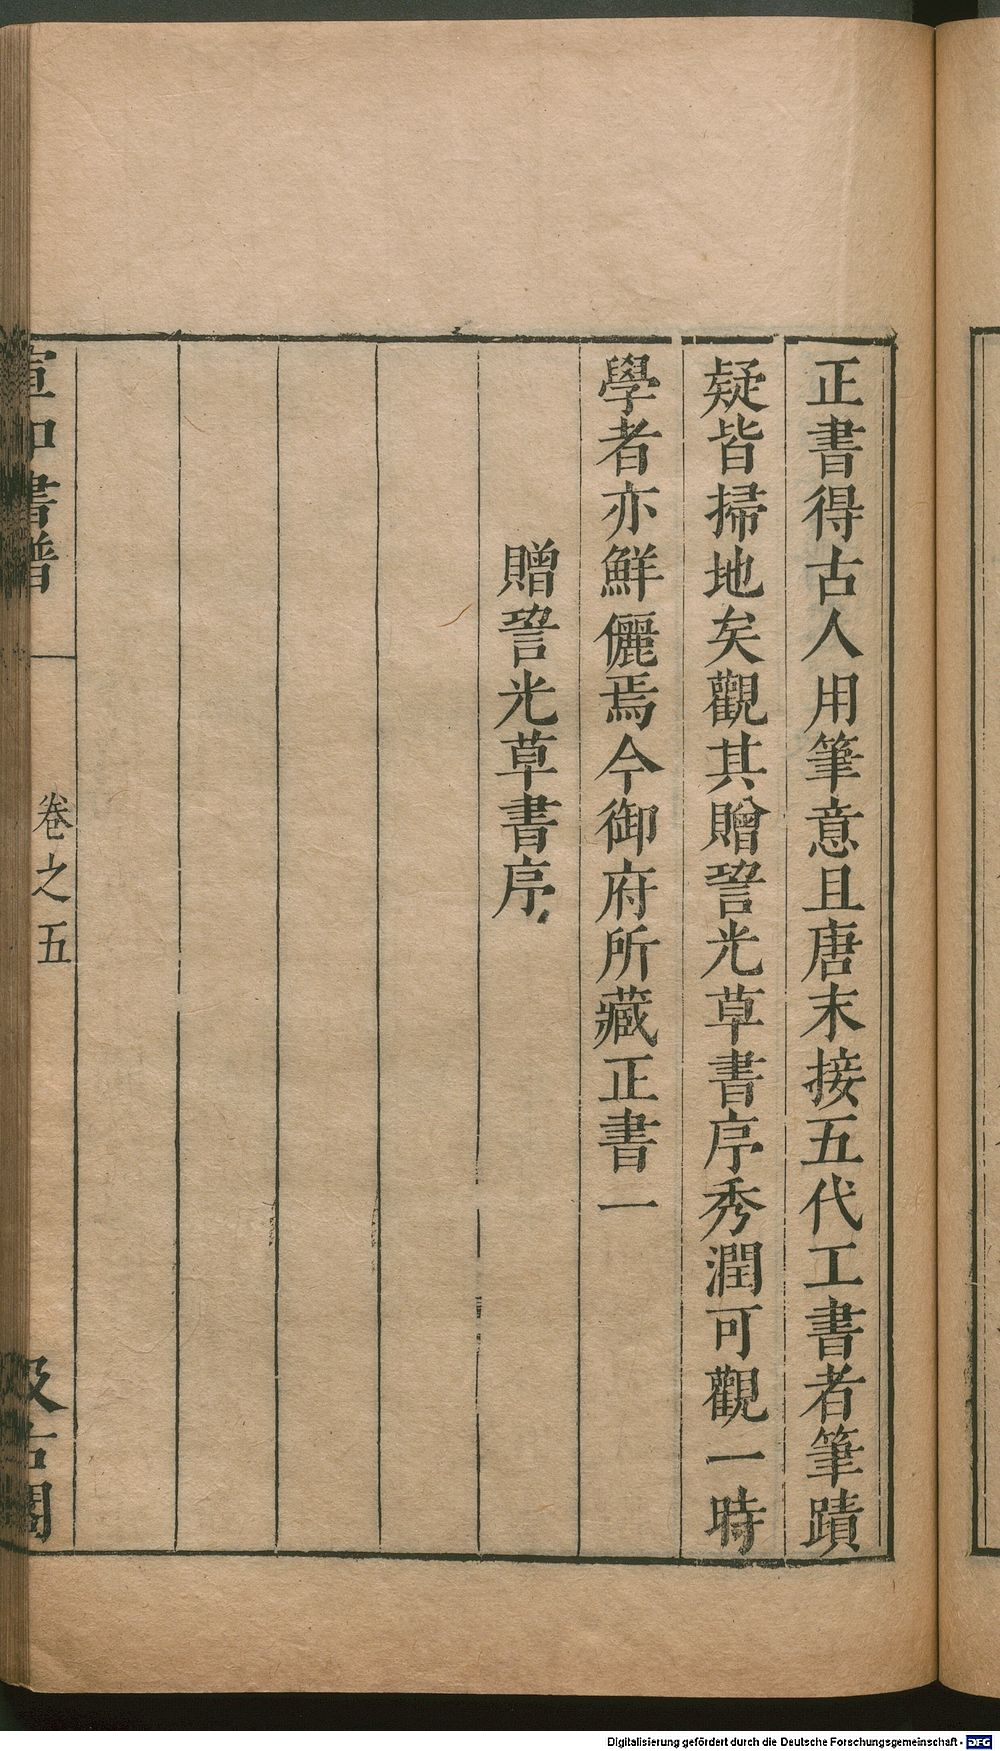 正書得古人用筆意且唐末接五代工書者筆蹟
疑皆掃地矣觀其贈䛒光草書序秀潤可觀一時
學者亦鮮儷焉今御府所藏正書一
贈䛒光草書序
宣和書譜
卷之五
汲古閣
Digitalisierung gefördert durch die Deutsche Forschungsgemeinschaft - DFG